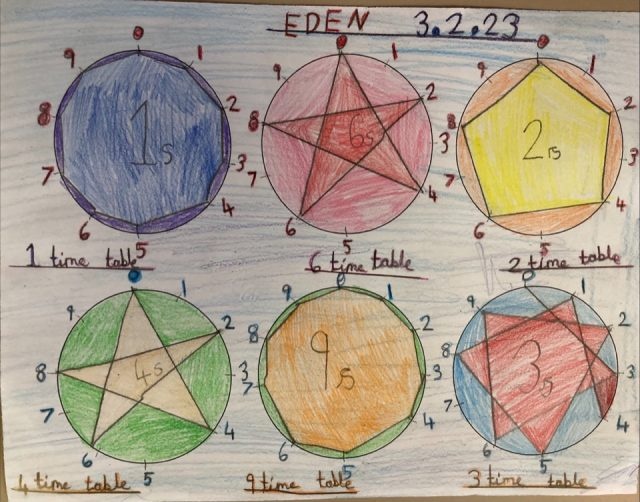 EDEN 3.2.23
0
9 1
8 2
1s
7 3
6 4
5
1 time table
0
9 1
8 2
6s
7 3
6 4
5
6 time table
0
9 1
8 2
2s
7 3
6 4
5
2 time table
0
9 1
8 2
4s
7 3
6 4
5
4 time table
0
9 1
8 2
9s
7 3
6 4
5
9 time table
0
9 1
8 2
3s
7 3
6 4
5
3 time table